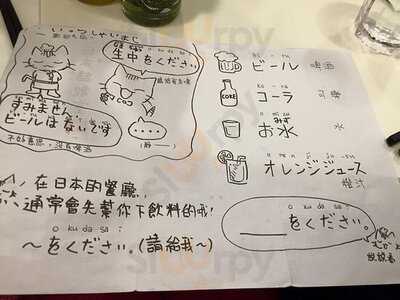 いらっしゃいませ
o ku da sa i
生中をください
すみません
ビールはないです
不好意思，沒有啤酒
(靜一)
bi - ru
ビール 啤酒
COKE
ko - ra
コーラ 可樂
o mi zu
みず
お水 水
o re n ji ju - su
オレンジジュース
橙汁
在日本的餐廳，
通常會先幫你下飲料的哦!
o ku da sa i
～をください。(請給我～)
o ku da sa i
＿をください。
說說看